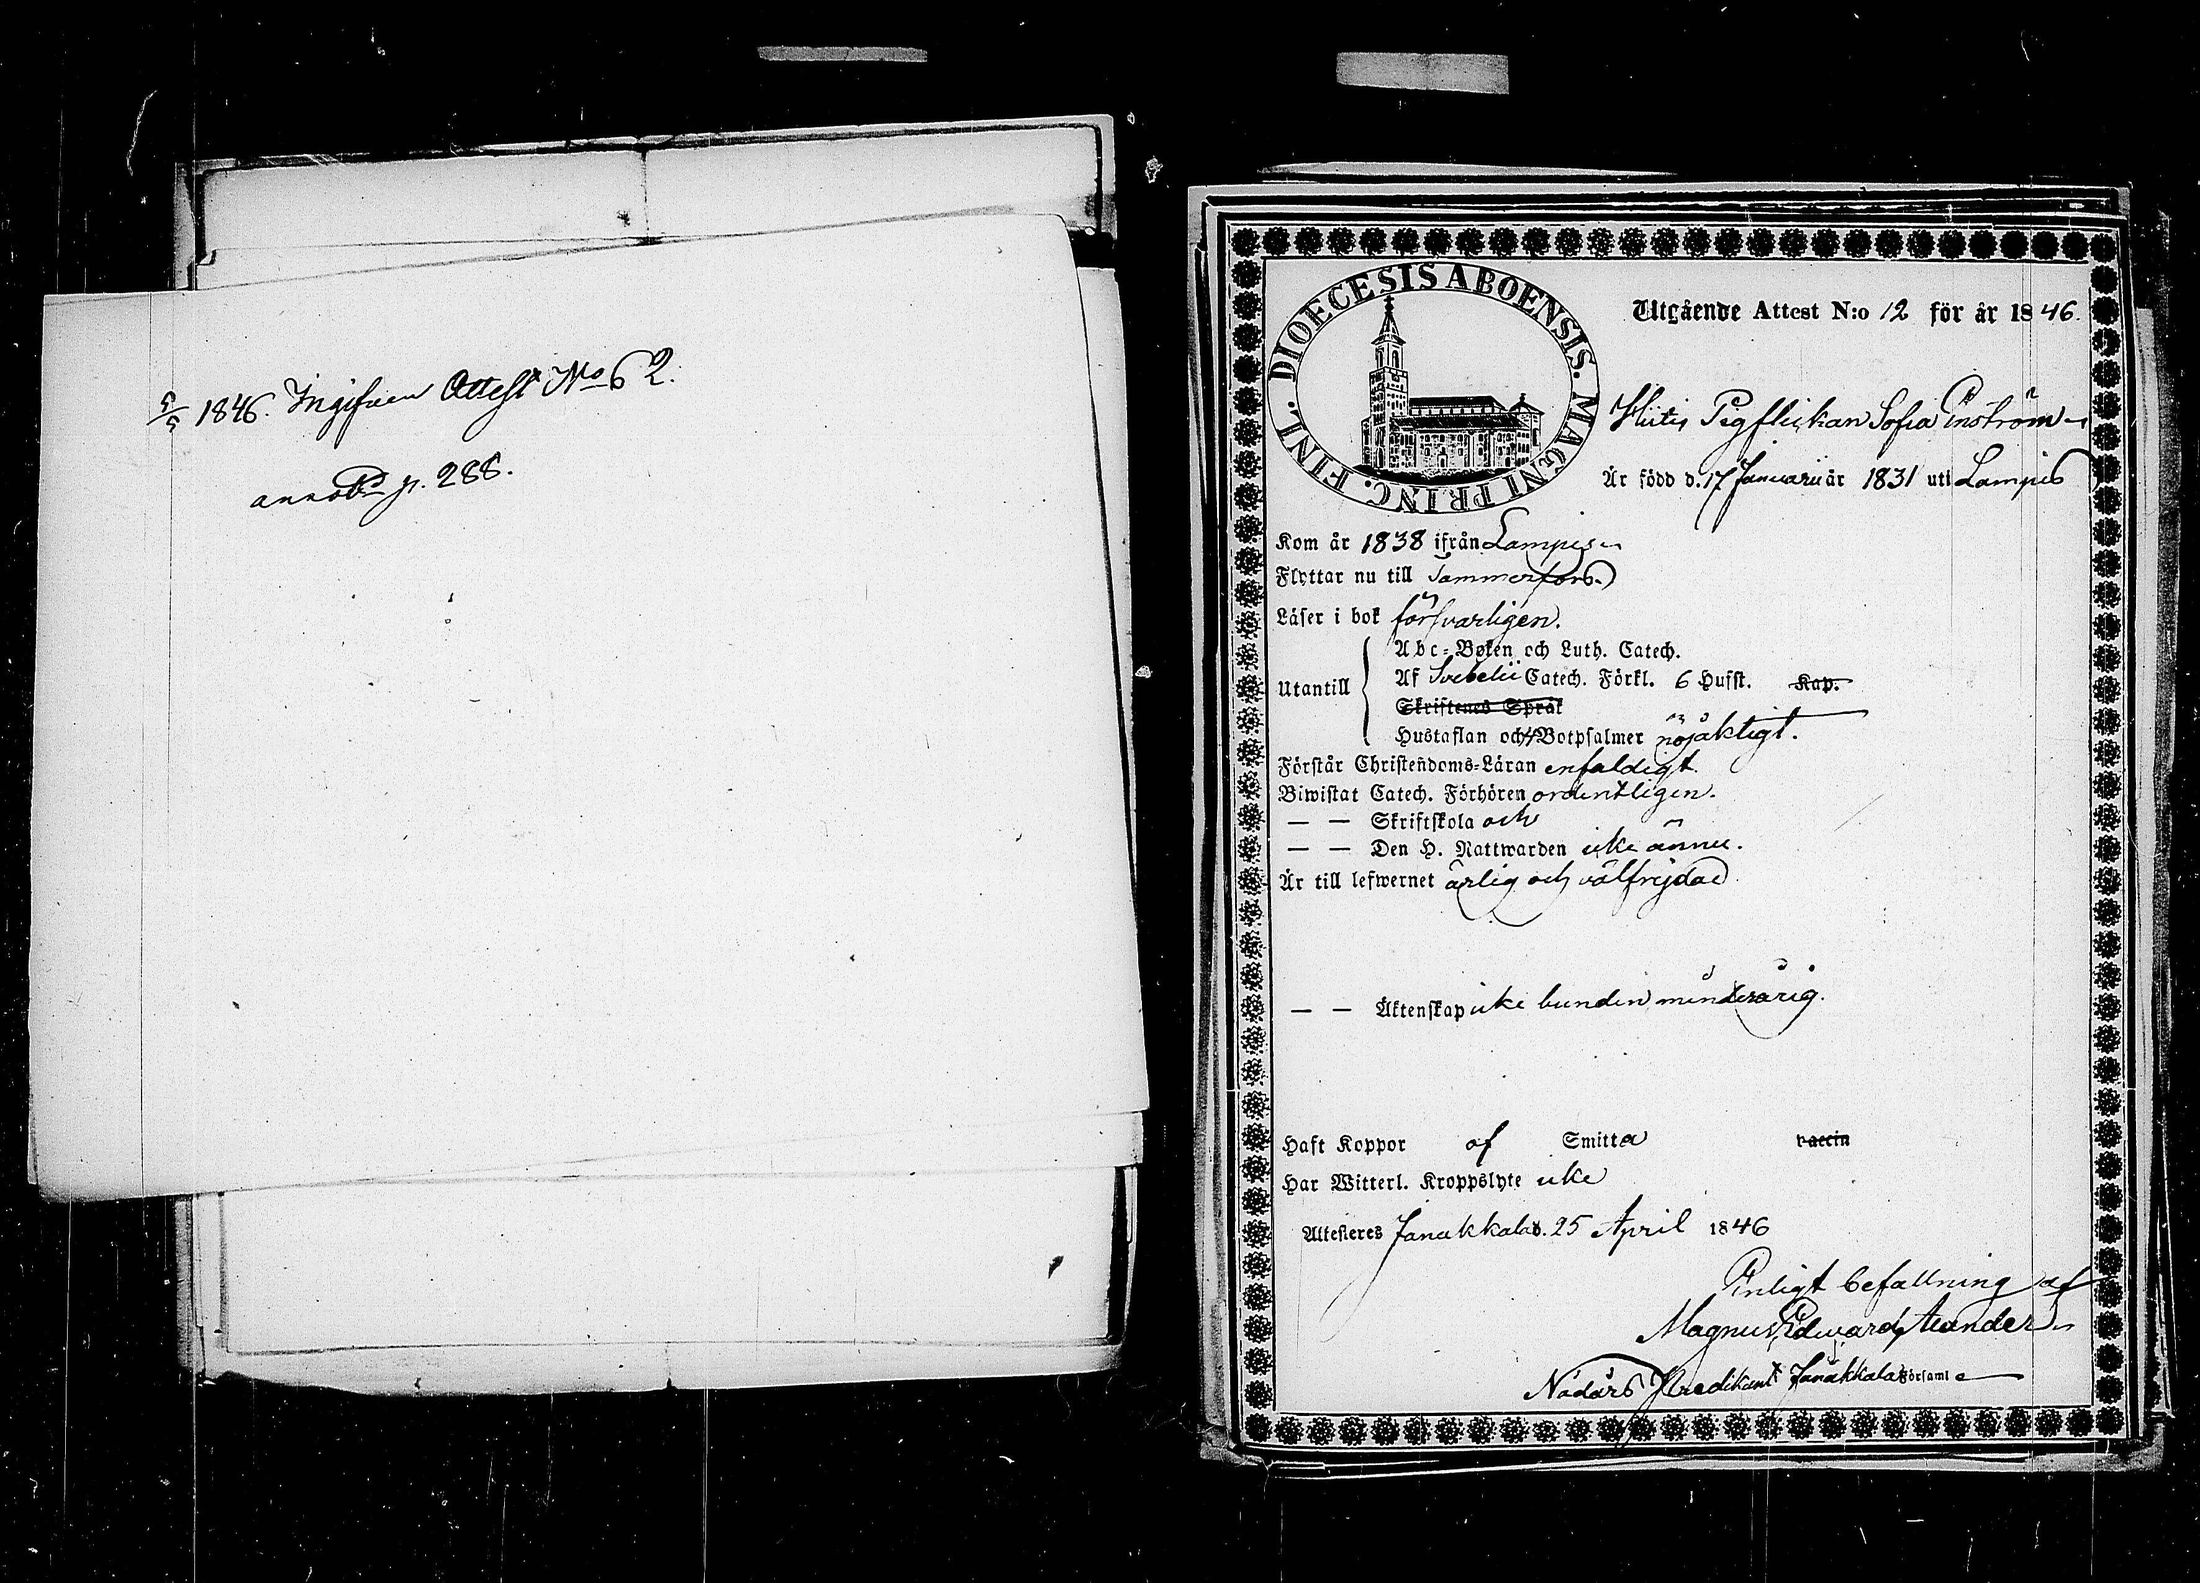 5/5 1846. Ingifven Attest No 62.
p. 288.
DIOECESIS ABOENSIS. MAGNI PRINC. FINL.
Utgående Attest N:o 12 för år 1846.
Pigflickan Sofia Enström
Är född d. 17 Januarii år 1831 uti Lampis
Kom år 1838 ifrån Lampis
Flyttar nu till Tammerfors.
Läser i bok försvarligen.
Abc-Boken och Luth. Catech.
Utantill Af Svebelii Catech. Förkl. 6 Hufst. Kap.
Skriftenes Språk
Hustaflan och Botpsalmer nöjaktigt.
Förstår Christendoms-Läran enfaldigt.
Biwistat Catech. Förhören ordentligen.
— — Skriftskola och
— — Den H. Nattwarden icke ännu.
Är till lefwernet ärlig och välfrejdad
— — Äktenskap icke bunden minderårig.
Haft Koppor af Smitta vaccin
Har Witterl. Kroppslyte icke
Attesteres Janakkala d. 25 April 1846
Enligt befallning af
Magnus Edward
Nådårs Predikant i Janakkala Församl